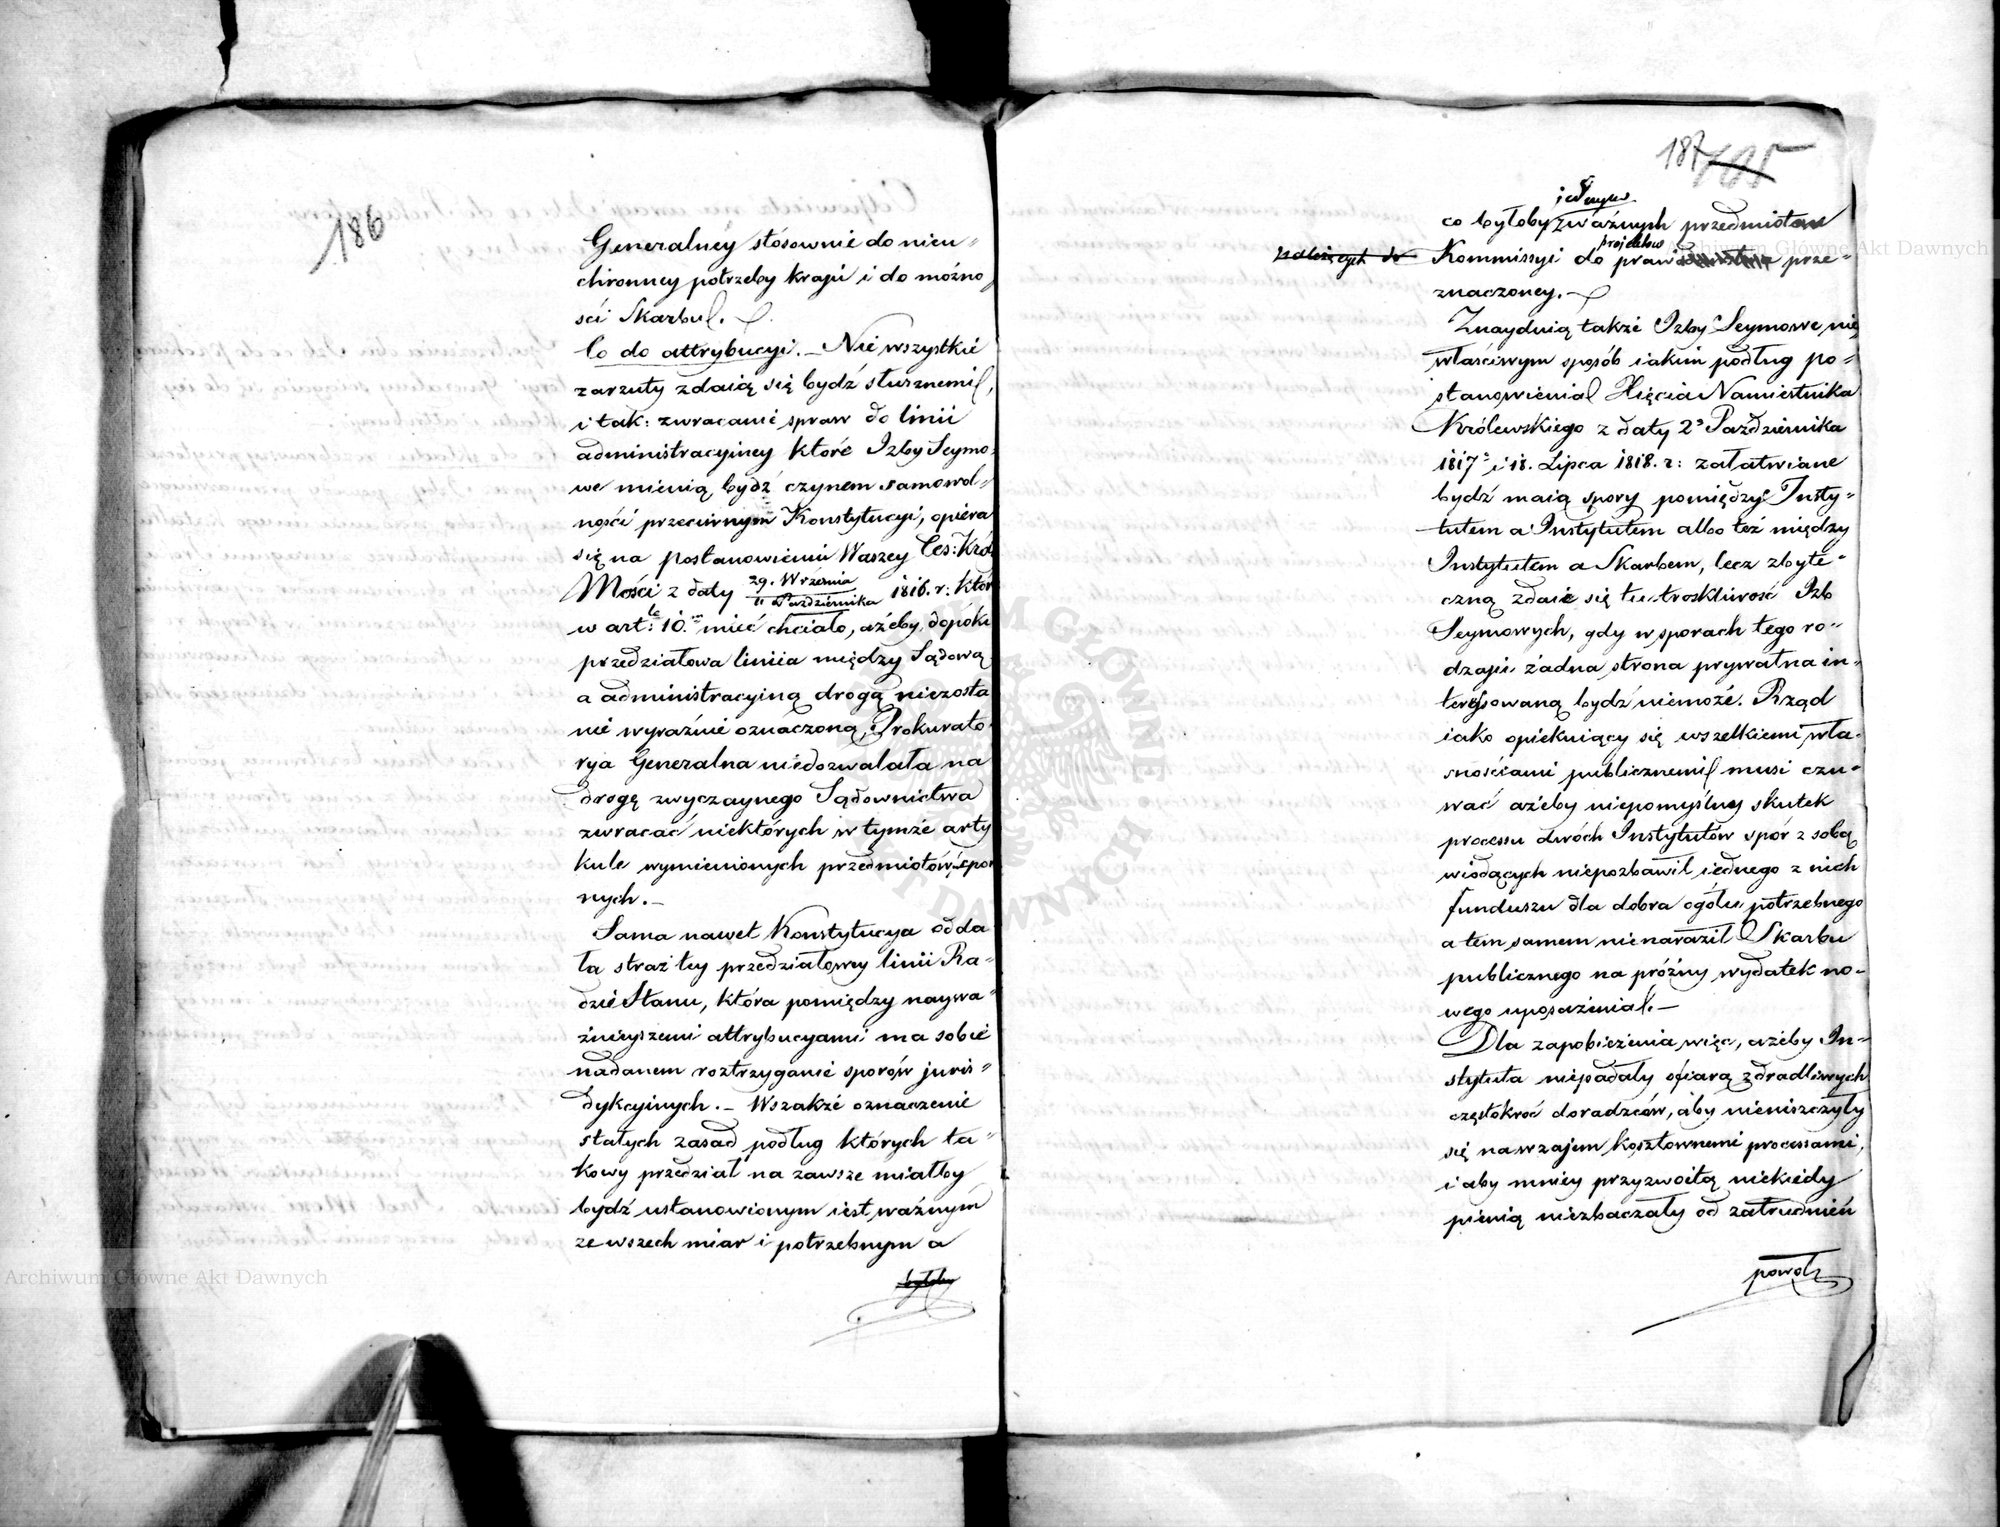 186
Generalney stósownie do nieu=
chronney potrzeby kraju i do możno
ści Skarbu.
Co do attrybucyi. — Nie wszystkie
zarzuty zdaią się bydź słusznemi,
i tak: zwracanie spraw do linii
administracyiney które Izby Seymo=
we mienią bydź czynem samowol=
ności przeciwnym Konstytucyi, opiera
się na postanowieniu Waszey Ces: Król
Mości z daty 29. Września
11 Października 1816. r: któr
w art: 10. mieć chciało, ażeby dopóki
przedziałowa liniia między Sądową
a administracyiną drogą niezosta
nie wyraźnie oznaczoną, Prokurato=
rya Generalna niedozwalała na
drogę zwyczaynego Sądownictwa
zwracać niektórych w tymże arty
kule wymienionych przedmiotów spor
nych. —
Sama nawet Konstytucya odda
ła straż tey przedziałowey linii Ra=
dzie Stanu, która pomiędzy naywa=
żnieyszemi attrybucyami ma sobie
nadanem roztrzyganie sporów juris=
dykcyinych. — Wszakże oznaczenie
stałych zasad podług których ta=
kowy przedział na zawsze miałby
bydź ustanowionym iest ważnym
ze wszech miar i potrzebnym a
byłoby
187 185
iednym
co byłoby z ważnych przedmiotów
należących do Kommissyi do projektów praw prze=
znaczoney. —
Znayduią także Izby Seymowe nie
właściwym sposób iakim podług po=
stanowienia Xięcia Namiestnika
Królewskiego z daty 2 Października
1817 i 18. Lipca 1818. r: załatwiane
bydź maią spory pomiędzy Insty=
tutem a Instytutem albo też między
Instytutem a Skarbem, lecz zbyte=
czną zdaie się tu troskliwość Izb
Seymowych, gdy w sporach tego ro=
dzaju żadna strona prywatna in=
teressowaną bydź niemoże. Rząd
iako opiekuiący się wszelkiemi wła=
snościami publicznemi musi czu=
wać ażeby niepomyślny skutek
processu dwóch Instytutów spór z sobą
wiodących niepozbawił iednego z nich
funduszu dla dobra ogółu potrzebnego
a tem samem nienaraził Skarbu
publicznego na próżny wydatek no=
wego uposażenia. —
Dla zapobieżenia więc, ażeby In=
stytuta niepadały ofiarą zdradliwych
częstokroć doradzców, aby nieniszczyły
się nawzajem kosztownemi processami,
i aby mniey przyzwoitą niekiedy
pienią niezbaczały od zatrudnień
powoła
Archiwum Główne Akt Dawnych
Archiwum Główne Akt Dawnych